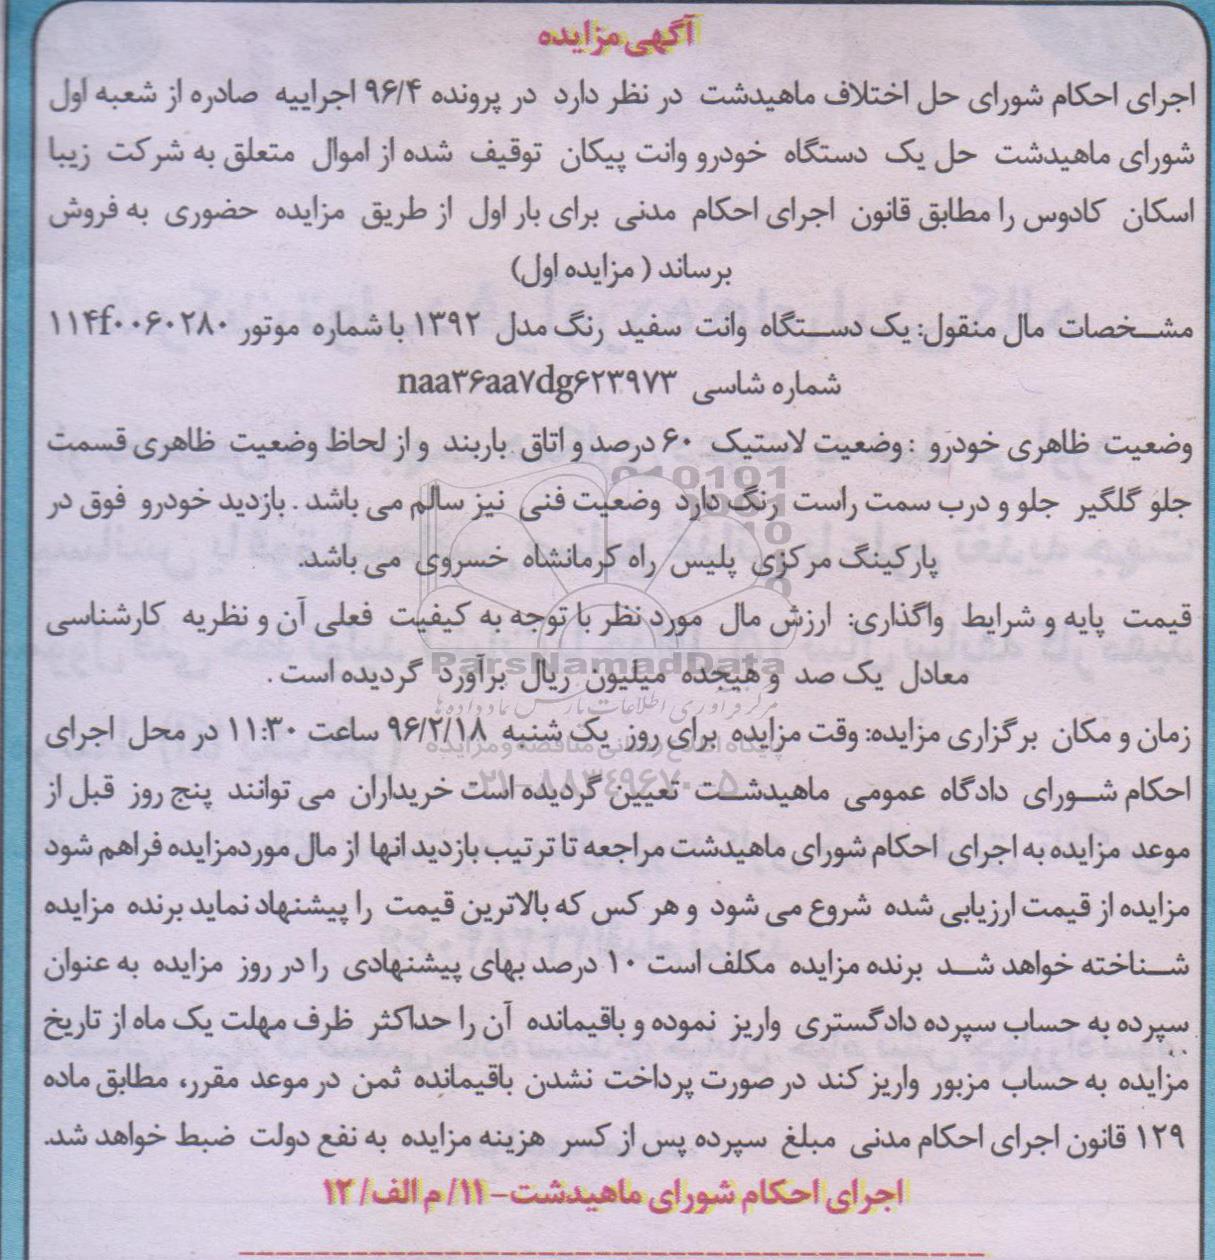 آگهی مزایده
اجرای احکام شورای حل اختلاف ماهیدشت در نظر دارد در پرونده ۹۶/۴ اجراییه صادره از شعبه اول
شورای ماهیدشت حل یک دستگاه خودرو وانت پیکان توقیف شده از اموال متعلق به شرکت زیبا
اسکان کادوس را مطابق قانون اجرای احکام مدنی برای بار اول از طریق مزایده حضوری به فروش
برساند ( مزایده اول)
مشخصات مال منقول: یک دستگاه وانت سفید رنگ مدل ۱۳۹۲ با شماره موتور ۱۱۴f۰۰۶۰۲۸۰
شماره شاسی naa۳۶aa۷dg۶۲۳۹۷۳
وضعیت ظاهری خودرو : وضعیت لاستیک ۶۰ درصد و اتاق باربند و از لحاظ وضعیت ظاهری قسمت
جلو گلگیر جلو و درب سمت راست رنگ دارد وضعیت فنی نیز سالم می باشد . بازدید خودرو فوق در
پارکینگ مرکزی پلیس راه کرمانشاه خسروی می باشد.
قیمت پایه و شرایط واگذاری: ارزش مال مورد نظر با توجه به کیفیت فعلی آن و نظریه کارشناسی
معادل یک صد و هیجده میلیون ریال برآورد گردیده است .
زمان و مکان برگزاری مزایده: وقت مزایده برای روز یک شنبه ۹۶/۲/۱۸ ساعت ۱۱:۳۰ در محل اجرای
احکام شورای دادگاه عمومی ماهیدشت تعیین گردیده است خریداران می توانند پنج روز قبل از
موعد مزایده به اجرای احکام شورای ماهیدشت مراجعه تا ترتیب بازدید انها از مال مورد مزایده فراهم شود
مزایده از قیمت ارزیابی شده شروع می شود و هر کس که بالاترین قیمت را پیشنهاد نماید برنده مزایده
شناخته خواهد شد برنده مزایده مکلف است ۱۰ درصد بهای پیشنهادی را در روز مزایده به عنوان
سپرده به حساب سپرده دادگستری واریز نموده و باقیمانده آن را حداکثر ظرف مهلت یک ماه از تاریخ
مزایده به حساب مزبور واریز کند در صورت پرداخت نشدن باقیمانده ثمن در موعد مقرر، مطابق ماده
۱۲۹ قانون اجرای احکام مدنی مبلغ سپرده پس از کسر هزینه مزایده به نفع دولت ضبط خواهد شد.
اجرای احکام شورای ماهیدشت-۱۱/ م الف/ ۱۲
ParsNamadData
مرکز فرآوری اطلاعات پارس نماد داده ها
پایگاه اطلاع رسانی مناقصه و مزایده
۰۲۱-۸۸۳۴۹۶۷۰-۵